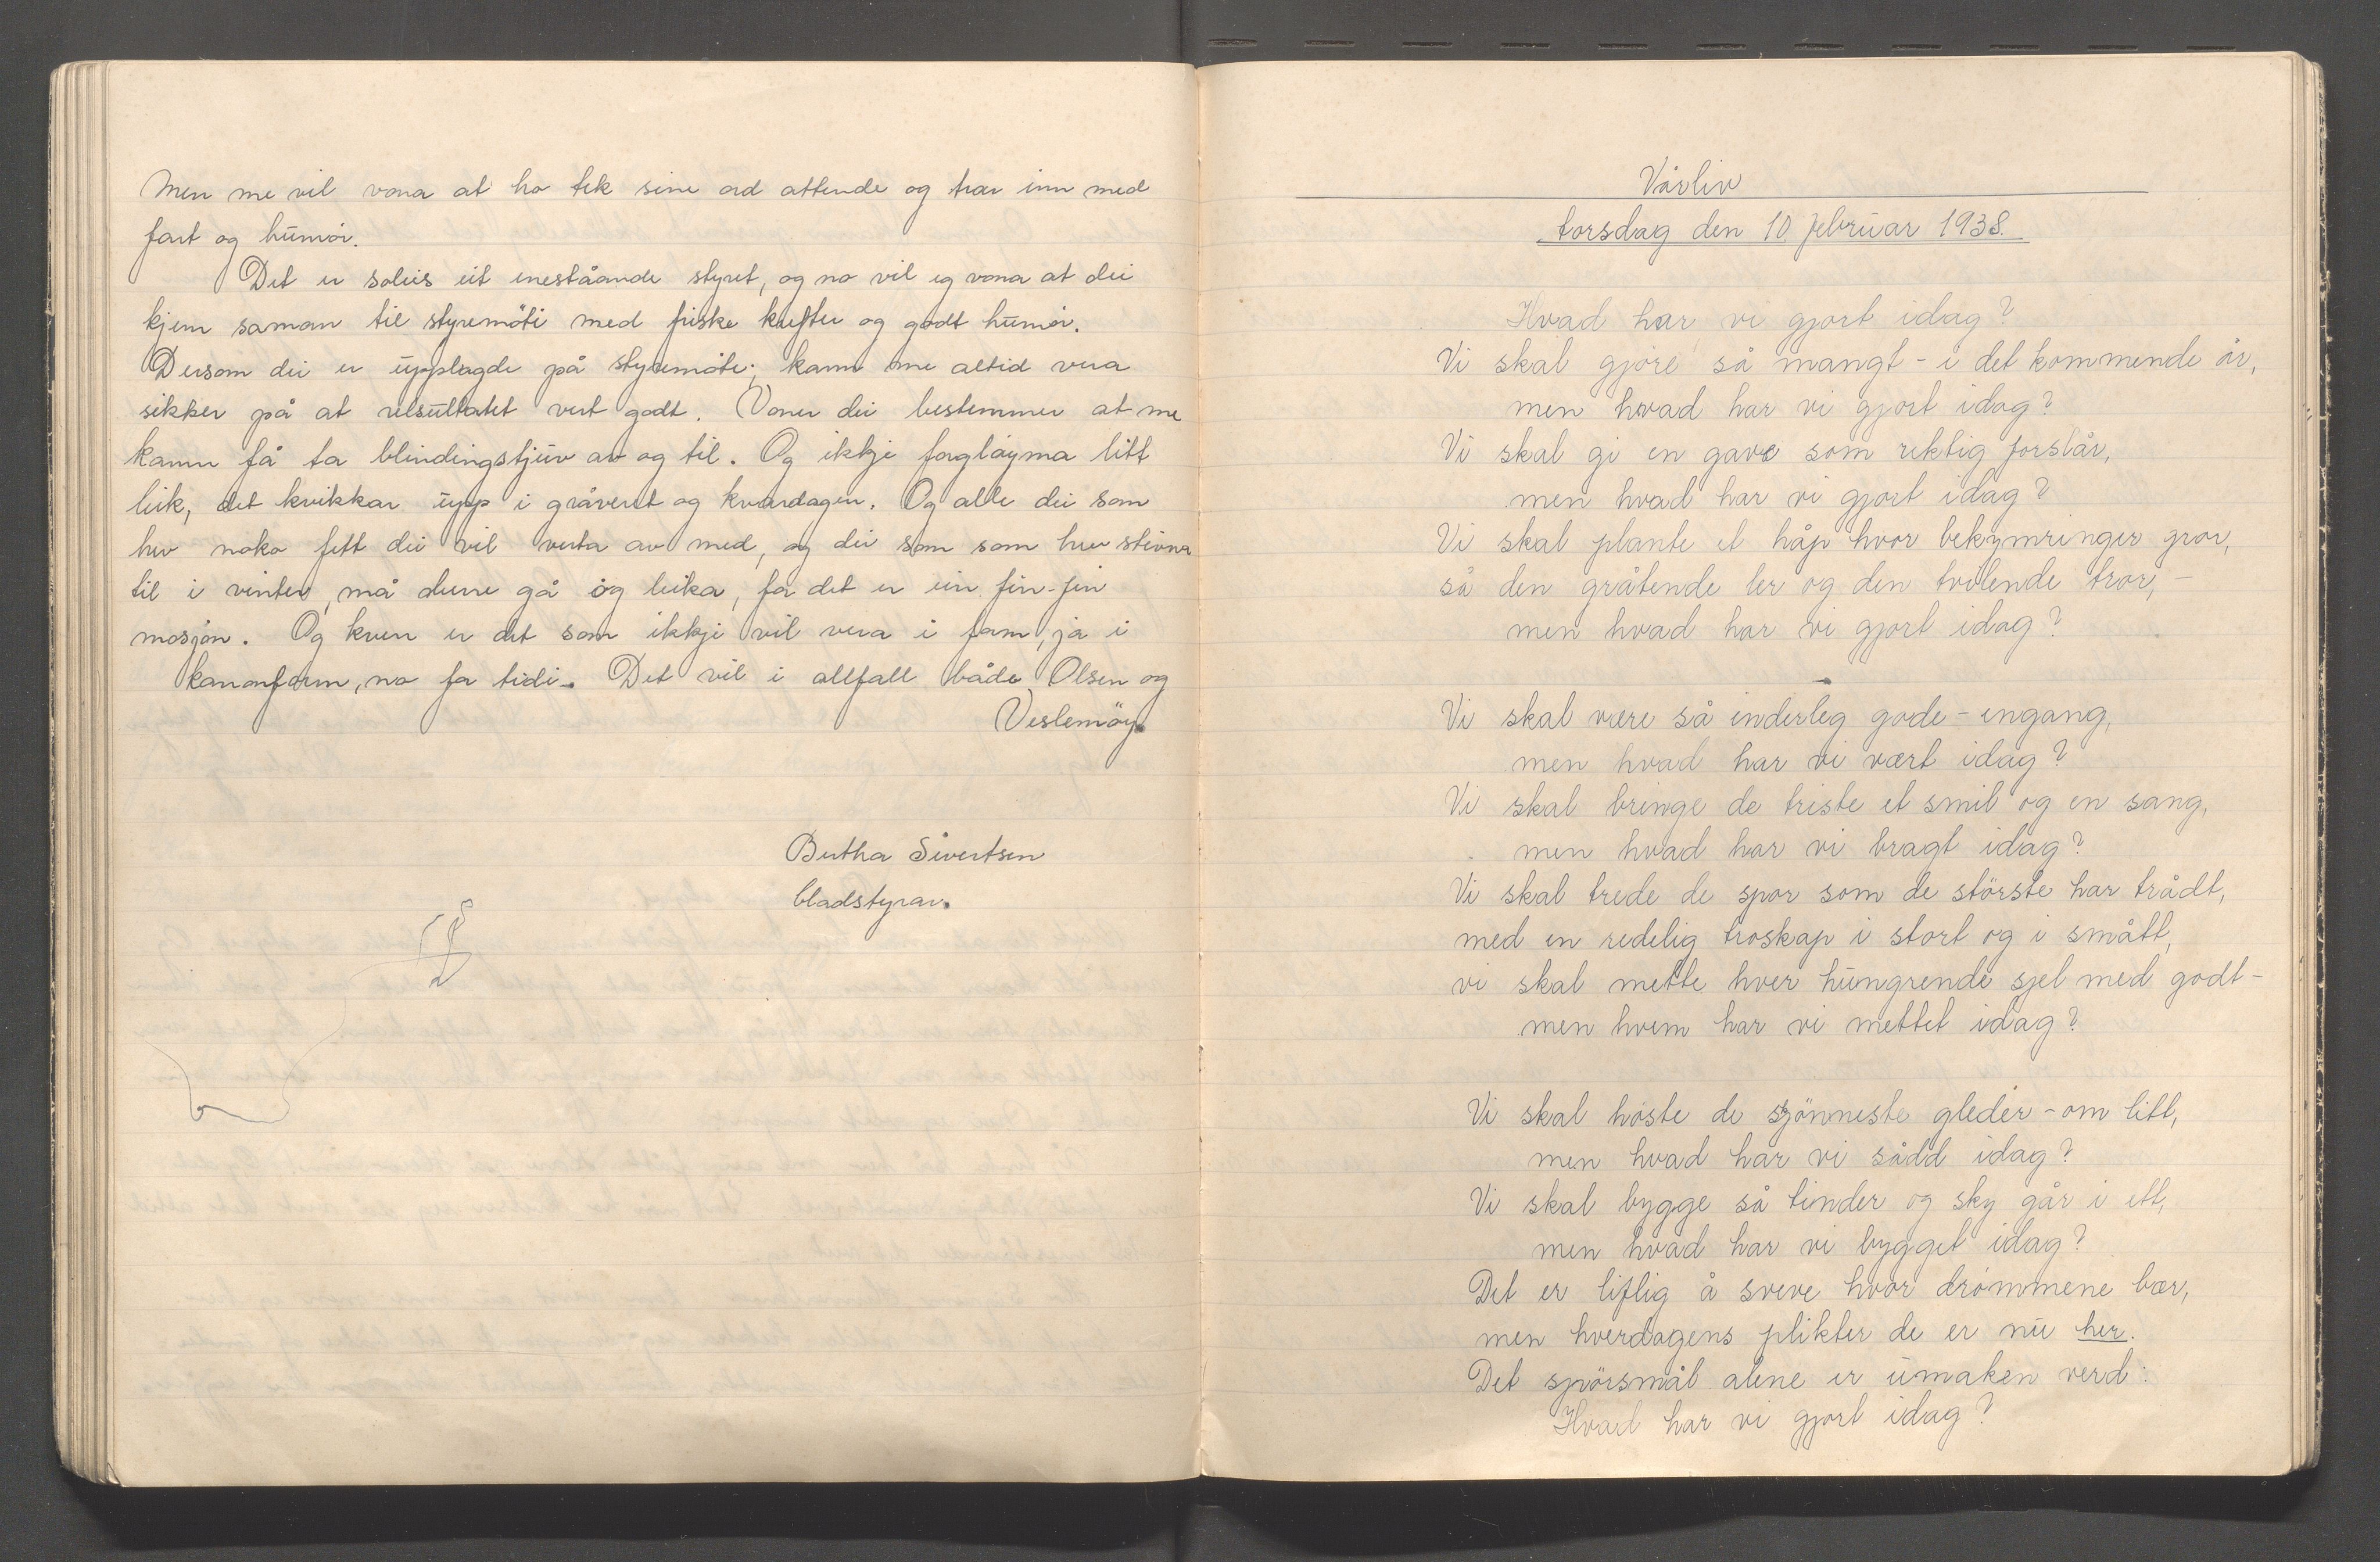 Men me vil vona at ho tek sine ord attende og trar inn med
fart og humör.
Det er soleis eit eneståande styret, og no vil eg vona at dei
kjem saman til styremöti med friske krefter og godt humör.
Dersom dei er upplagde på styremöte; kann me altid vera
sikker på at relsultatet vert godt. Voner dei bestemmer at me
kann få ta blindingstjuv av og til. Og ikkje forglöyma litt
leik, det kvikkar upp i gråveret og kvardagen. Og alle dei som
hev noko fett dei vil verta av med, og dei som som hev stivna
til i vinter, må derre gå og leika, for det er ein fin-fin
mosjon. Og kven er det som ikkje vil vera i form, ja i
kanonform, no for tidi. Det vil i allfall både Olsen og
Veslemöy.
Bertha Sivertsen
bladstyrar.
Vårliv
torsdag den 10 februar 1938.
Hvad har vi gjort idag?
Vi skal gjöre så mangt - i det kommende år,
men hvad har vi gjort idag?
Vi skal gi en gave som riktig forslår,
men hvad har vi gjort idag?
Vi skal plante et håp hvor bekymringer gror,
så den gråtende ler og den tvilende tror, -
men hvad har vi gjort idag?
Vi skal være så inderleg gode - engang,
men hvad har vi vært idag?
Vi skal bringe de triste et smil og en sang,
men hvad har vi bragt idag?
Vi skal trede de spor som de störste har trådt,
med en redelig troskap i stort og i smått,
vi skal mette hver hungrende sjel med godt -
men hvem har vi mettet idag?
Vi skal höste de sjönneste gleder - om litt,
men hvad har vi sådd idag?
Vi skal bygge så tinder og sky går i ett,
men hvad har vi bygget idag?
Det er liflig å sveve hvor drömmene bær,
men hverdagens plikter de er nu her.
Det spörsmål alene er umaken verd:
Hvad har vi gjort idag?